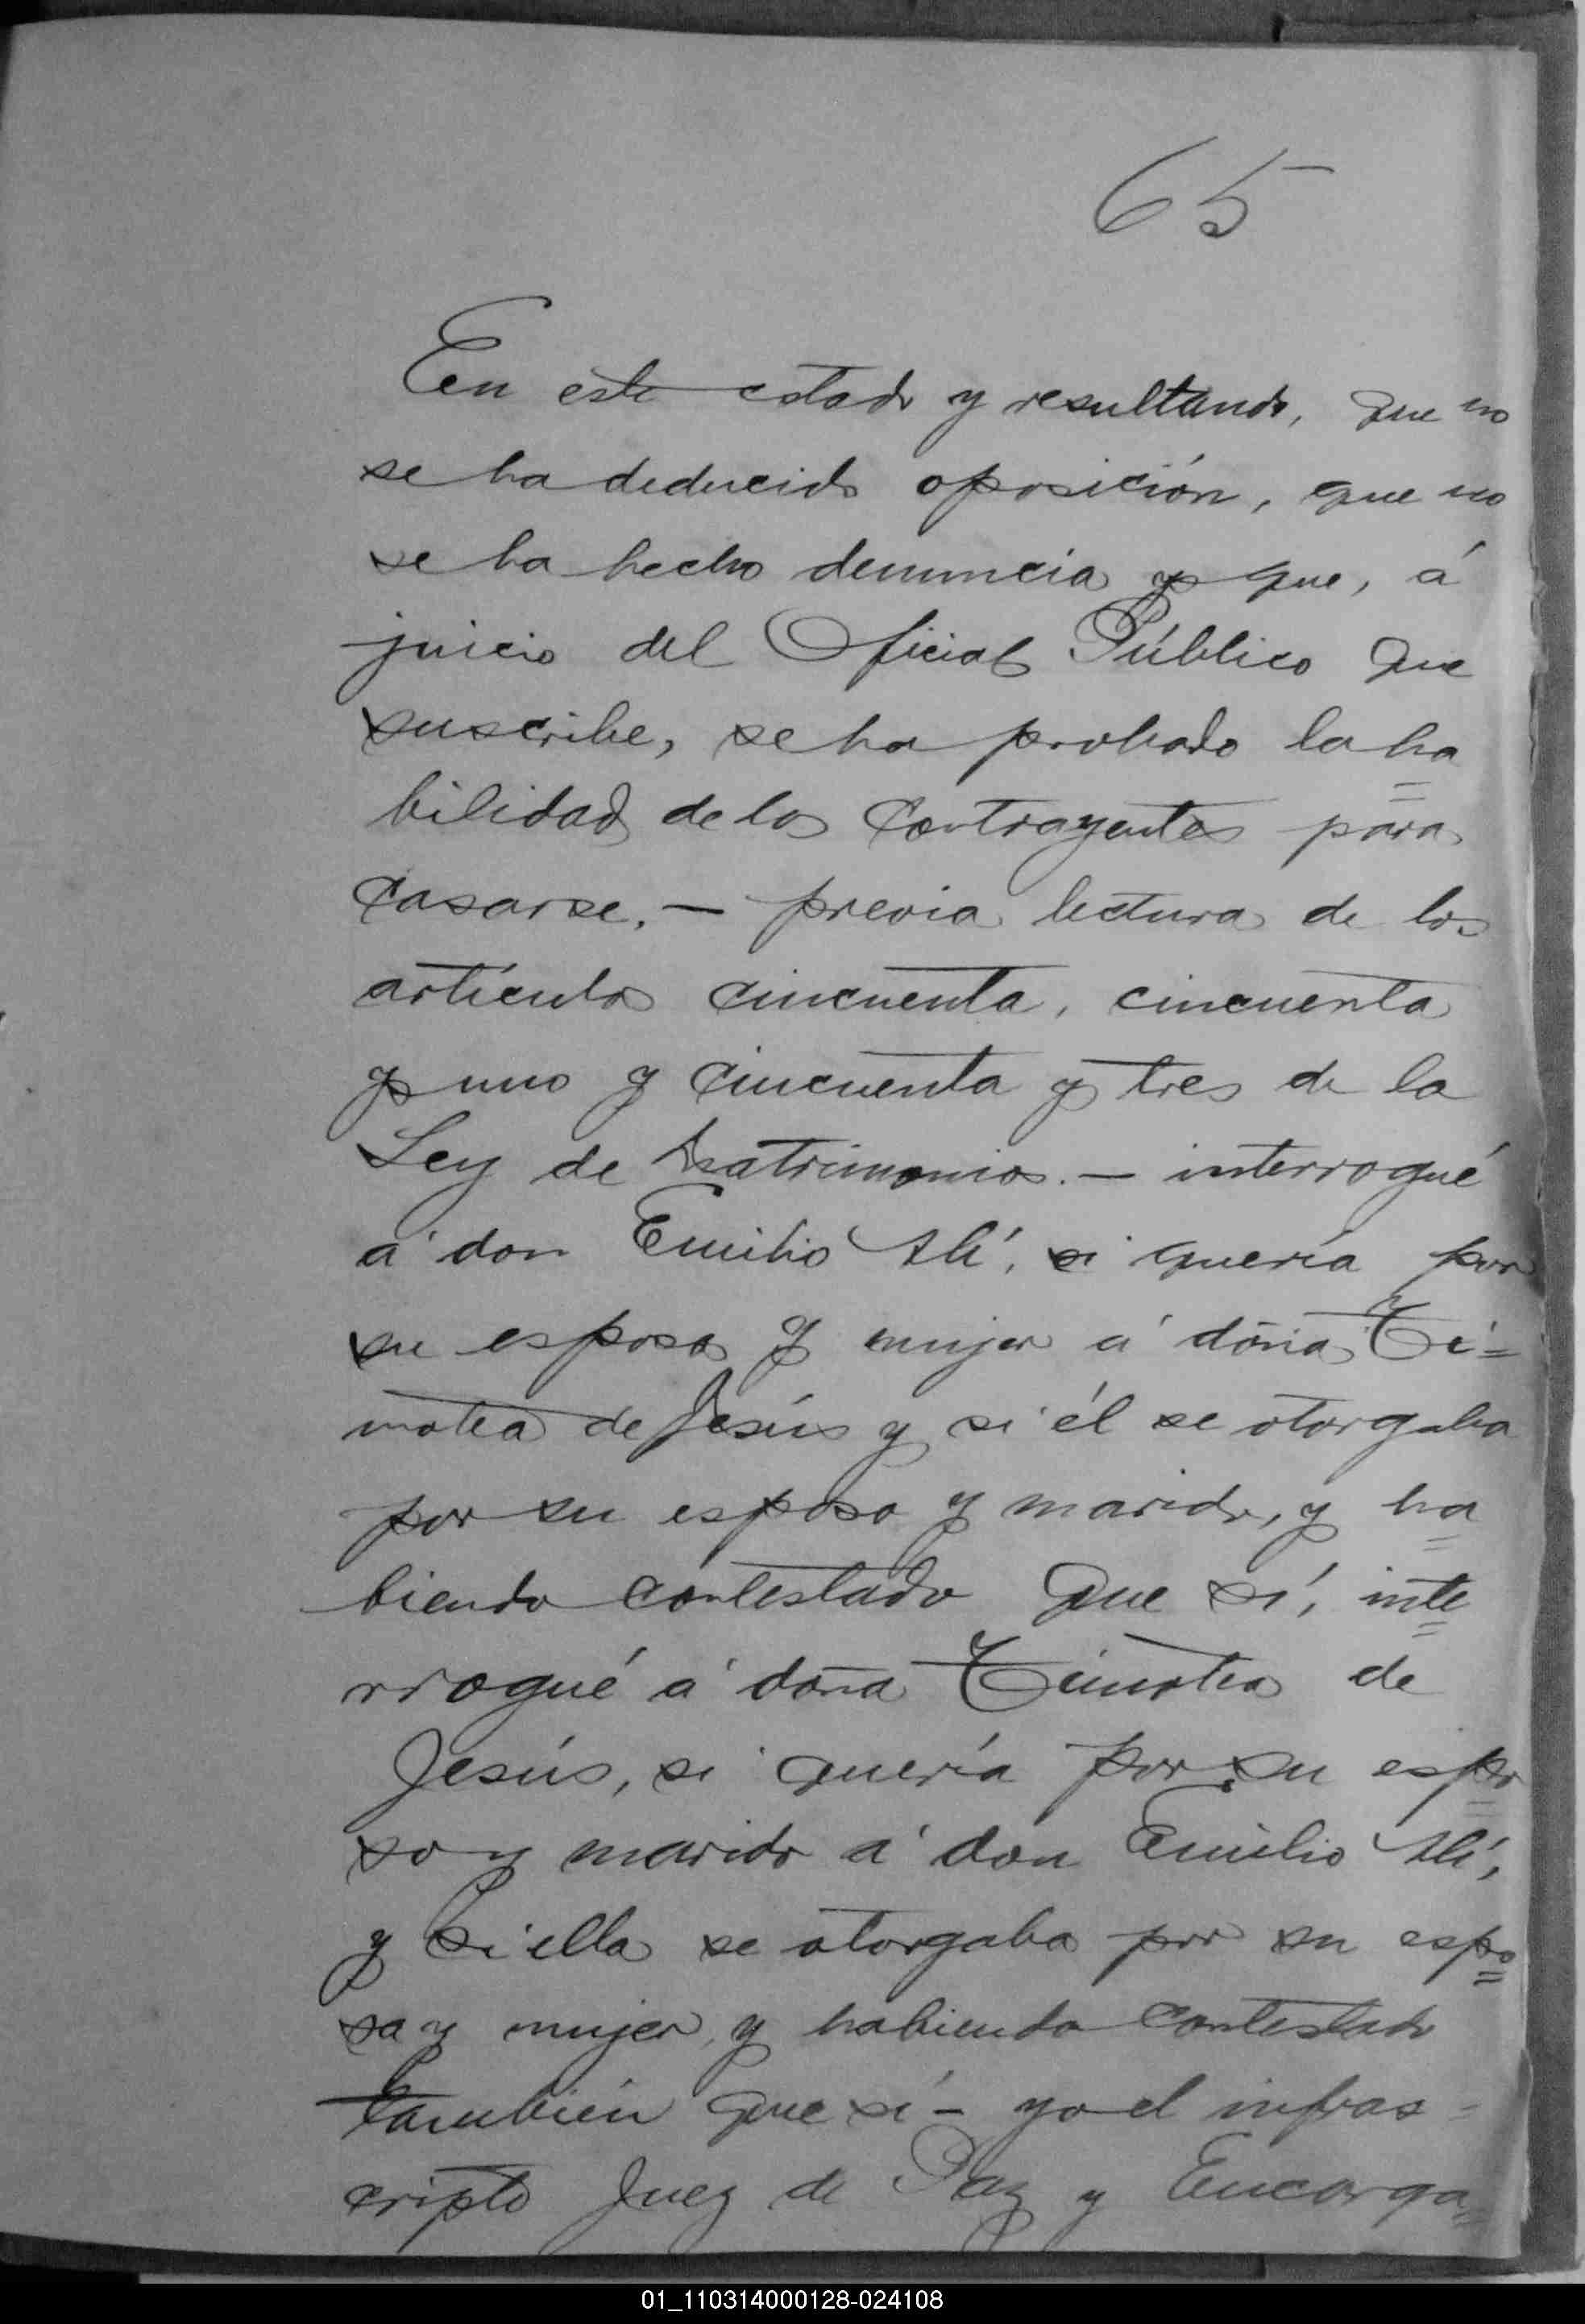 65
En este estado y resultando, que no
se ha deducido oposición, que no
se ha hecho denuncia y que, á
juicio del Oficial Público que
suscribe, se ha probado la ha=
bilidad de los contrayentes para
casarse. — previa lectura de los
artículos cincuenta, cincuenta
y uno y cincuenta y tres de la
Ley de Matrimonios. — interrogué
á don Emilio Alí, si quería por
su esposa y mujer á doña Ti=
motea de Jesús y si él se otorgaba
por su esposo y marido, y ha=
biendo contestado que sí, inte=
rrogué á doña Timotea de
Jesús, si quería por su espo=
so y marido á don Emilio Alí,
y si ella se otorgaba por su espo=
sa y mujer, y habiendo contestado
también que sí — yo el infras=
cripto Juez de Paz y Encarga=
01_110314000128-024108